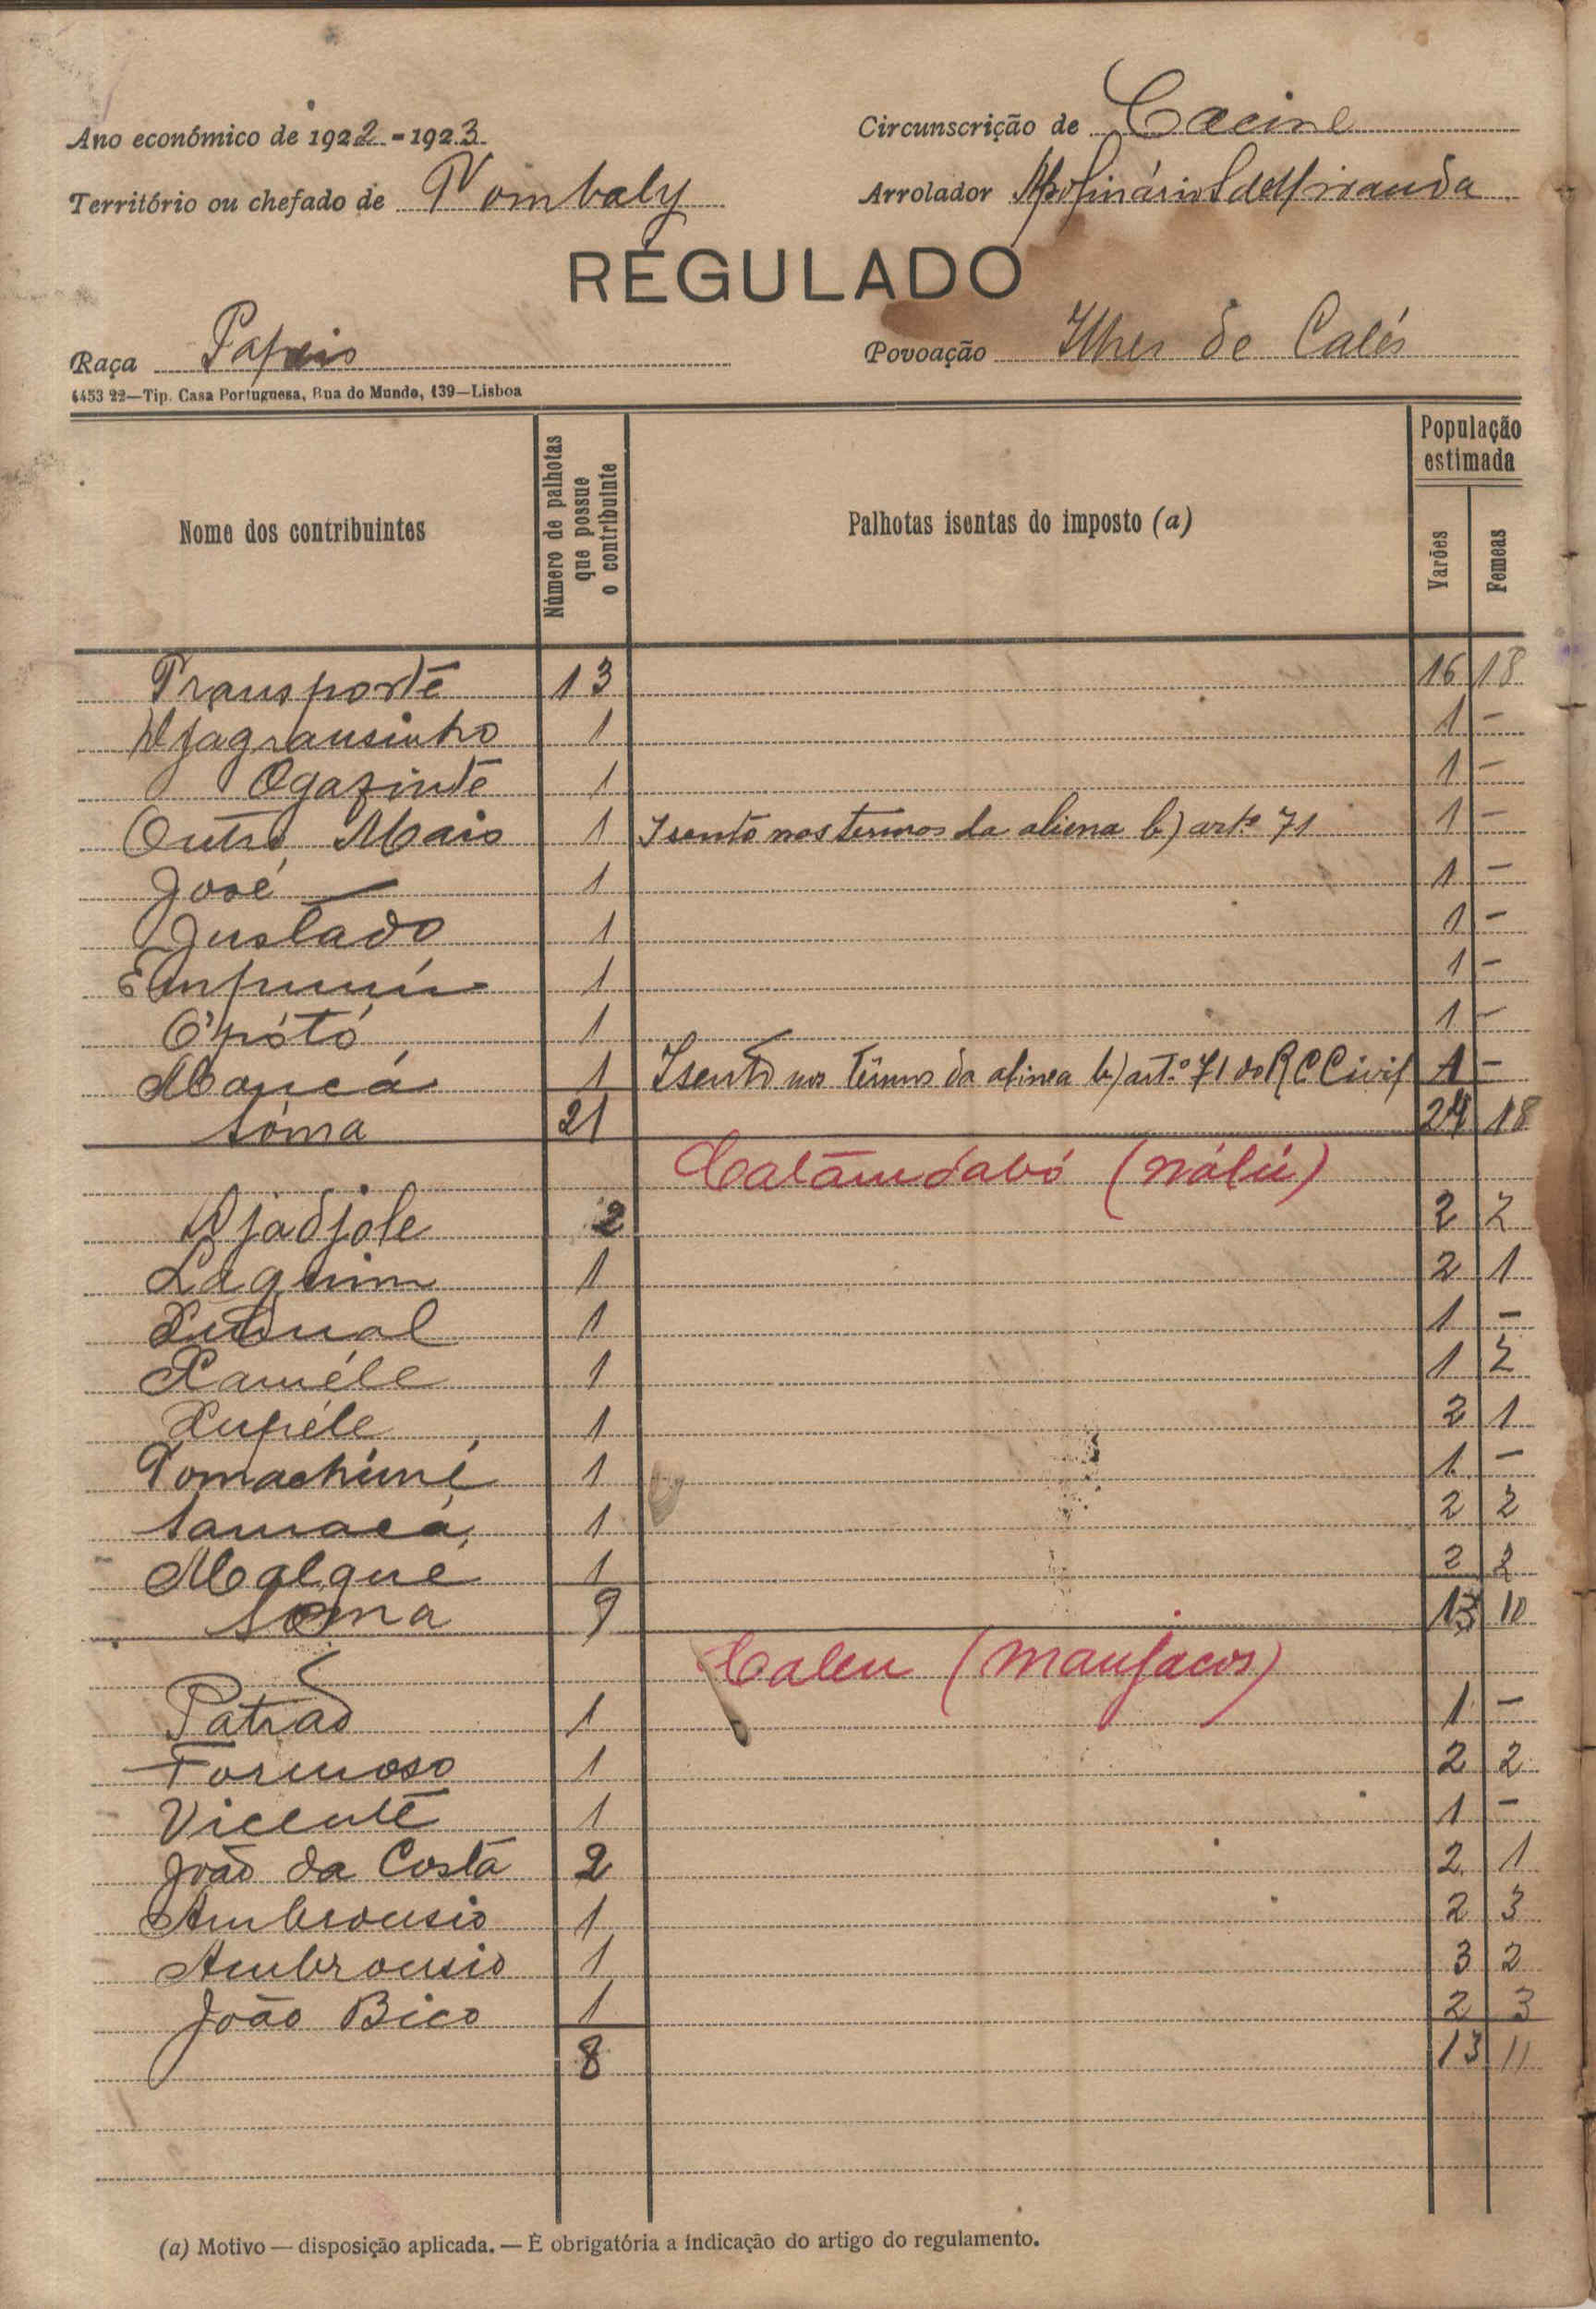 Ano económico de 1922-1923 Circunscrição de Cacine
Território ou chefado de Tombaly Arrolador Apolinário S de Miranda
REGULADO
Raça Papeis Povoação Ilheu de Caléi
4453 22—Tip. Casa Portuguesa, Rua do Mundo, 139—Lisboa
Nome dos contribuintes Número de palhotas que possue o contribuinte Palhotas isentas do imposto (a) População estimada Varões Femeas
Transporte 13 16 18
Djagransinho 1 1 -
Ogafinte 1 1 -
Outro Mais 1 Isento nos termos da aliena b) artº 71 1 -
José 1 1 -
Justado 1 1 -
1 1 -
O'pótó 1 1 -
Mancá 1 Isento nos têrmos da alinea b) art.º 71 do R C Civil 1 -
Sóma 21 24 18
Catamdabó (nálú)
Djadjole 2 2 2
Laquim 1 2 1
1 1 -
Raméle 1 1 2
Xupéle 1 2 1
Tomachimé 1 1 -
Samacá 1 2 2
Malqué 1 2 2
Soma 9 13 10
Caleu (manjacos)
Patrão 1 1 -
Formoso 1 2 2
Vicente 1 1 -
João da Costa 2 2 1
Ambrousio 1 2 3
Ambrousio 1 3 2
João Bico 1 2 3
8 13 11
(a) Motivo — disposição aplicada. — É obrigatória a indicação do artigo do regulamento.